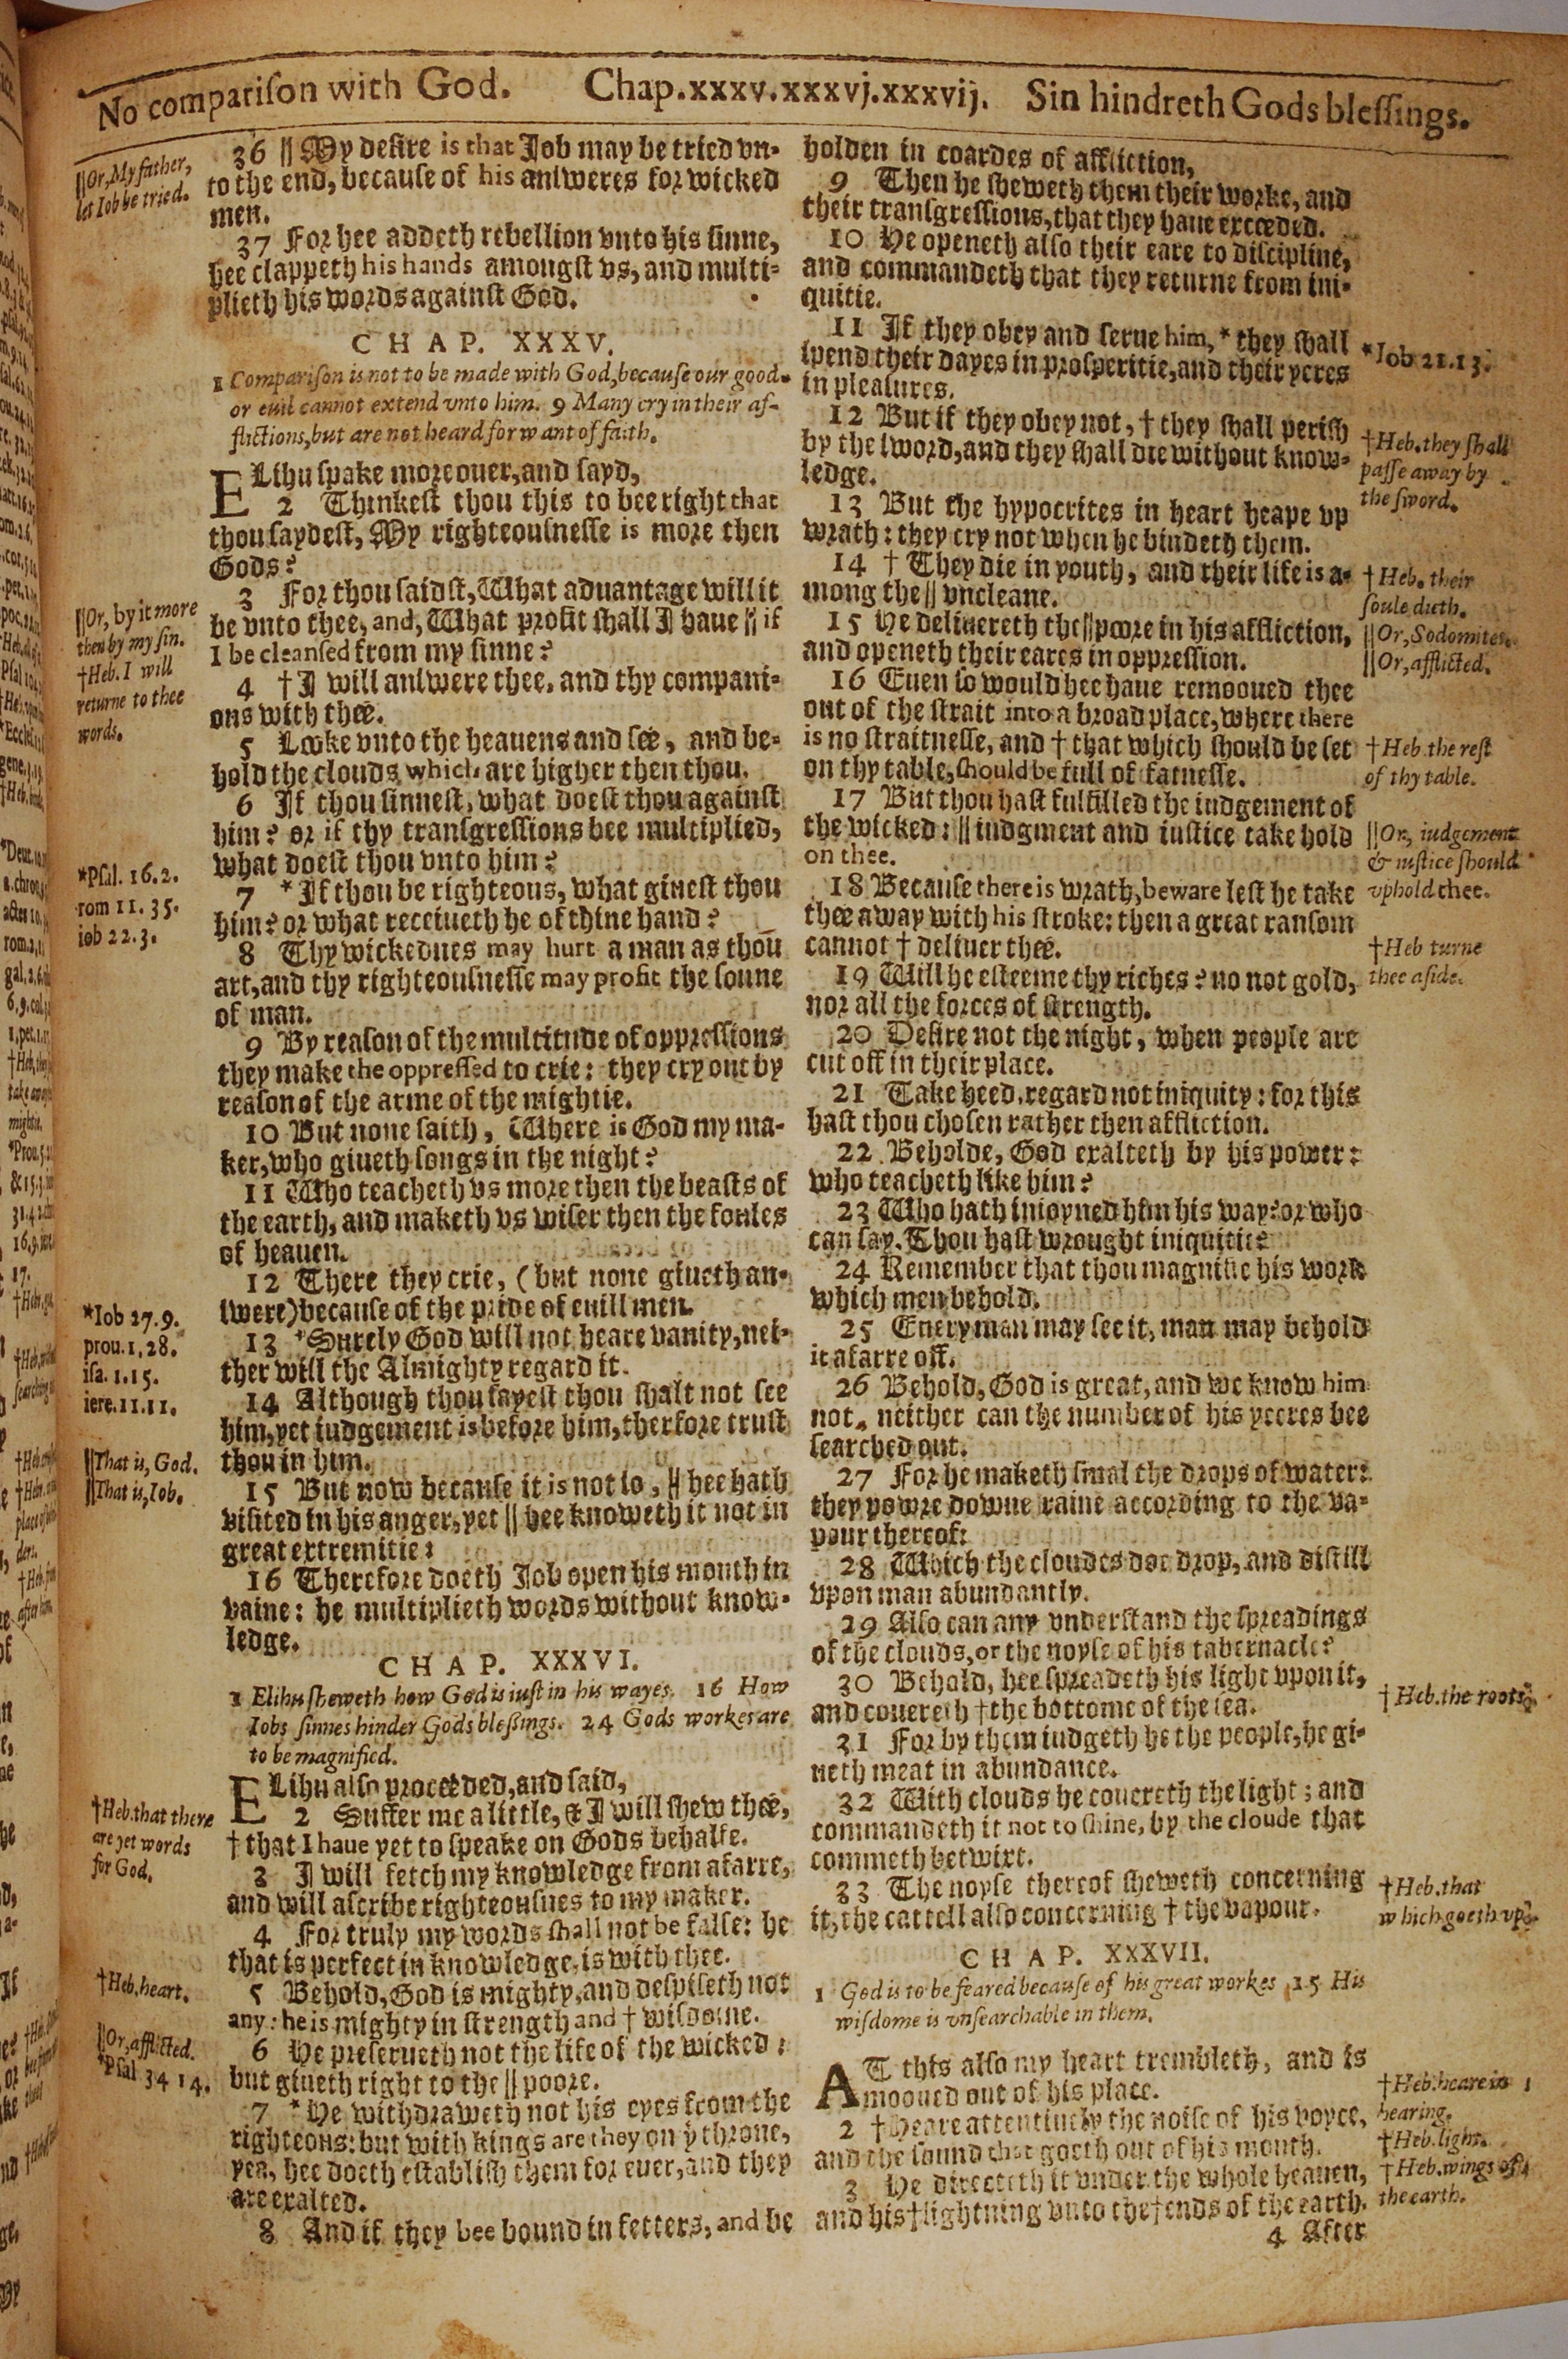 No comparison with God. Chap.xxxv.xxxvj.xxxvij. Sin hindreth Gods blessings.
||Or, My father,
let Iob be tried.
36 || My desire is that Job may be tried vn-
to the end, because of his answeres for wicked
men.
37 For hee addeth rebellion vnto his sinne,
hee clappeth his hands amongst vs, and multi-
plieth his words against God.
CHAP. XXXV.
1 Comparison is not to be made with God, because our good
or euil cannot extend vnto him. 9 Many cry in their af-
flictions, but are not heard for want of faith.
ELihu spake moreouer, and sayd,
2 Thinkest thou this to bee right that
thou saydest, My righteousnesse is more then
Gods?
3 For thou saidst, What aduantage will it
be vnto thee, and, What profit shall I haue || if
I be cleansed from my sinne?
4 † I will answere thee, and thy compani-
ons with thee.
5 Looke vnto the heauens and see, and be-
hold the clouds which are higher then thou.
6 If thou sinnest, what doest thou against
him? or if thy transgressions bee multiplied,
what doest thou vnto him?
7 * If thou be righteous, what giuest thou
him? or what receiueth he of thine hand?
8 Thy wickednes may hurt a man as thou
art, and thy righteousnesse may profit the sonne
of man.
9 By reason of the multitude of oppressions
they make the oppressed to crie: they cry out by
reason of the arme of the mightie.
10 But none saith, Where is God my ma-
ker, who giueth songs in the night?
11 Who teacheth vs more then the beasts of
the earth, and maketh vs wiser then the foules
of heauen.
12 There they crie, (but none giueth an-
swere) because of the pride of euill men.
13 * Surely God will not heare vanity, nei-
ther will the Almighty regard it.
14 Although thou sayest thou shalt not see
him, yet iudgement is before him, therfore trust
thou in him.
15 But now because it is not so, || hee hath
visited in his anger, yet || hee knoweth it not in
great extremitie:
16 Therefore doeth Job open his mouth in
vaine: he multiplieth words without know-
ledge.
||Or, by it more
then by my sin.
†Heb. I will
returne to thee
words.
*Psal. 16.2.
rom 11. 35.
iob 22.3.
*Iob 27.9.
prou. 1, 28.
isa. 1.15.
iere. 11.11.
||That is, God.
||That is, Iob.
CHAP. XXXVI.
1 Elihu sheweth how God is iust in his wayes. 16 How
Iobs sinnes hinder Gods blessings. 24 Gods workes are
to be magnified.
ELihu also proceeded, and said,
2 Suffer me a little, & I will shew thee,
† that I haue yet to speake on Gods behalfe.
3 I will fetch my knowledge from afarre,
and will ascribe righteousnes to my maker.
4 For truly my words shall not be false: he
that is perfect in knowledge, is with thee.
5 Behold, God is mighty, and despiseth not
any: he is mighty in strength and † wisdome.
6 He preserueth not the life of the wicked:
but giueth right to the || poore.
7 * He withdraweth not his eyes from the
righteous: but with kings are they on ẏ throne,
yea, hee doeth establish them for euer, and they
are exalted.
8 And if they bee bound in fetters, and be
†Heb. that there
are yet words
for God.
†Heb. heart.
||Or, afflicted.
*Psal 34 14.
holden in coardes of affliction,
9 Then he sheweth them their worke, and
their transgressions, that they haue exceeded.
10 He openeth also their eare to discipline,
and commandeth that they returne from ini-
quitie.
11 If they obey and serue him, * they shall
spend their dayes in prosperitie, and their yeres
in pleasures.
12 But if they obey not, † they shall perish
by the sword, and they shall die without know-
ledge.
13 But the hypocrites in heart heape vp
wrath: they cry not when he bindeth them.
14 † They die in youth, and their life is a-
mong the || vncleane.
15 He deliuereth the || poore in his affliction,
and openeth their eares in oppression.
16 Euen so would hee haue remooued thee
out of the strait into a broad place, where there
is no straitnesse, and † that which should be set
on thy table, should be full of fatnesse.
17 But thou hast fulfilled the iudgement of
the wicked: || iudgment and iustice take hold
on thee.
18 Because there is wrath, beware lest he take
thee away with his stroke: then a great ransom
cannot † deliuer thee.
19 Will he esteeme thy riches? no not gold,
nor all the forces of strength.
20 Desire not the night, when people are
cut off in their place.
21 Take heed, regard not iniquity: for this
hast thou chosen rather then affliction.
22 Beholde, God exalteth by his power:
who teacheth like him?
23 Who hath inioyned him his way? or who
can say, Thou hast wrought iniquitie?
24 Remember that thou magnifie his work
which men behold.
25 Euery man may see it, man may behold
it afarre off.
26 Behold, God is great, and we know him
not, neither can the number of his yeeres bee
searched out.
27 For he maketh smal the drops of water:
they powre downe raine according to the va-
pour thereof:
28 Which the cloudes doe drop, and distill
vpon man abundantly.
29 Also can any vnderstand the spreadings
of the clouds, or the noyse of his tabernacle?
30 Behold, hee spreadeth his light vpon it,
and couereth † the bottome of the sea.
31 For by them iudgeth he the people, he gi-
ueth meat in abundance.
32 With clouds he couereth the light; and
commandeth it not to shine, by the cloude that
commeth betwixt.
33 The noyse thereof sheweth concerning
it, the cattell also concerning † the vapour.
*Iob 21.13.
†Heb. they shall
passe away by
the sword.
†Heb. their
soule dieth.
||Or, Sodomites.
||Or, afflicted.
†Heb. the rest
of thy table.
||Or, iudgement
& iustice should
vphold thee.
†Heb turne
thee aside.
†Heb. the roots.
†Heb. that
which goeth vp.
CHAP. XXXVII.
1 God is to be feared because of his great workes 15 His
wisdome is vnsearchable in them.
AT this also my heart trembleth, and is
mooued out of his place.
2 † Heare attentiuely the noise of his voyce,
and the sound that goeth out of his mouth.
3 He directeth it vnder the whole heauen,
and his † lightning vnto the † ends of the earth.
4 After
†Heb. heare in
hearing.
†Heb. light.
†Heb. wings of
the earth.